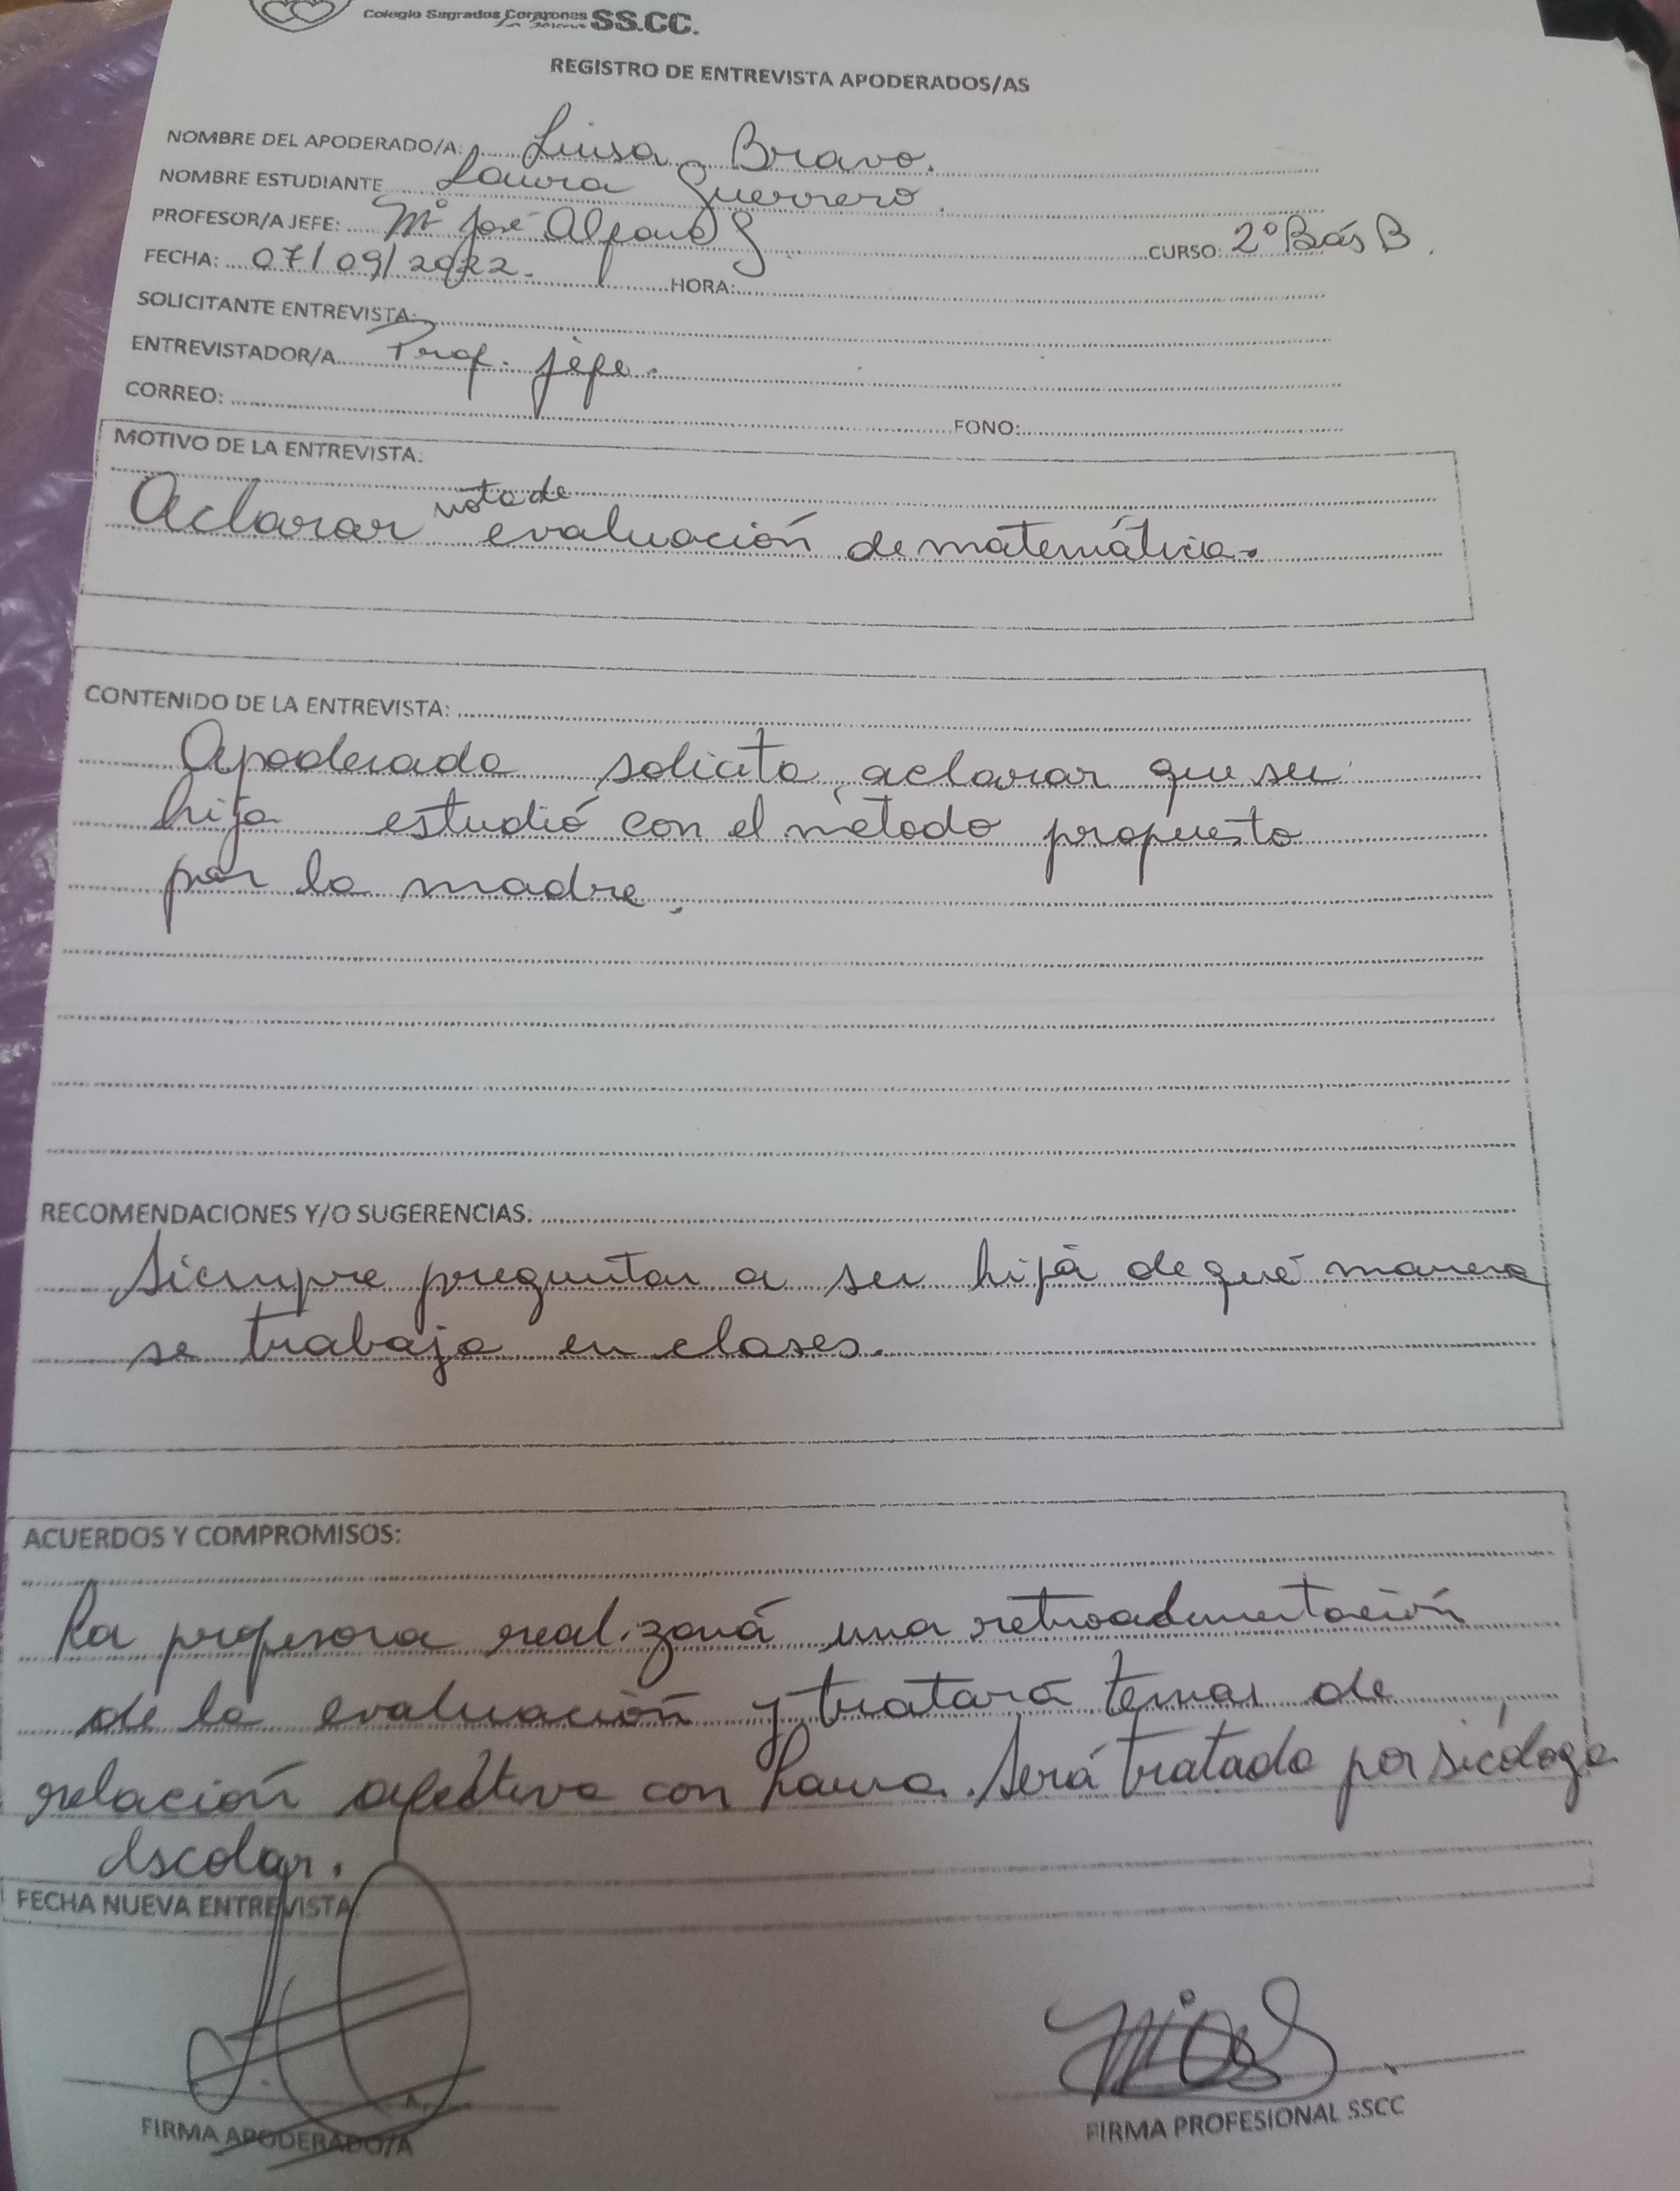 Colegio Sagrados Corazones SS.CC.
REGISTRO DE ENTREVISTA APODERADOS/AS
NOMBRE DEL APODERADO/A: Luisa Bravo.
NOMBRE ESTUDIANTE Laura Guerrero.
PROFESOR/A JEFE: Mª José Alfaro G CURSO: 2º Bás B.
FECHA: 07/09/2022. HORA:
SOLICITANTE ENTREVISTA:
ENTREVISTADOR/A Prof. jefe.
CORREO: FONO:
MOTIVO DE LA ENTREVISTA:
Aclarar nota de evaluación de matemática.
CONTENIDO DE LA ENTREVISTA:
Apoderada solicita aclarar que su
hija estudió con el método propuesto
por la madre.
RECOMENDACIONES Y/O SUGERENCIAS:
Siempre preguntar a su hija de qué manera
se trabaja en clases.
ACUERDOS Y COMPROMISOS:
La profesora realizará una retroalimentación
de la evaluación y tratará temas de
relación afectiva con Laura. Será tratado por sicóloga
escolar.
FECHA NUEVA ENTREVISTA
FIRMA APODERADO/A FIRMA PROFESIONAL SSCC